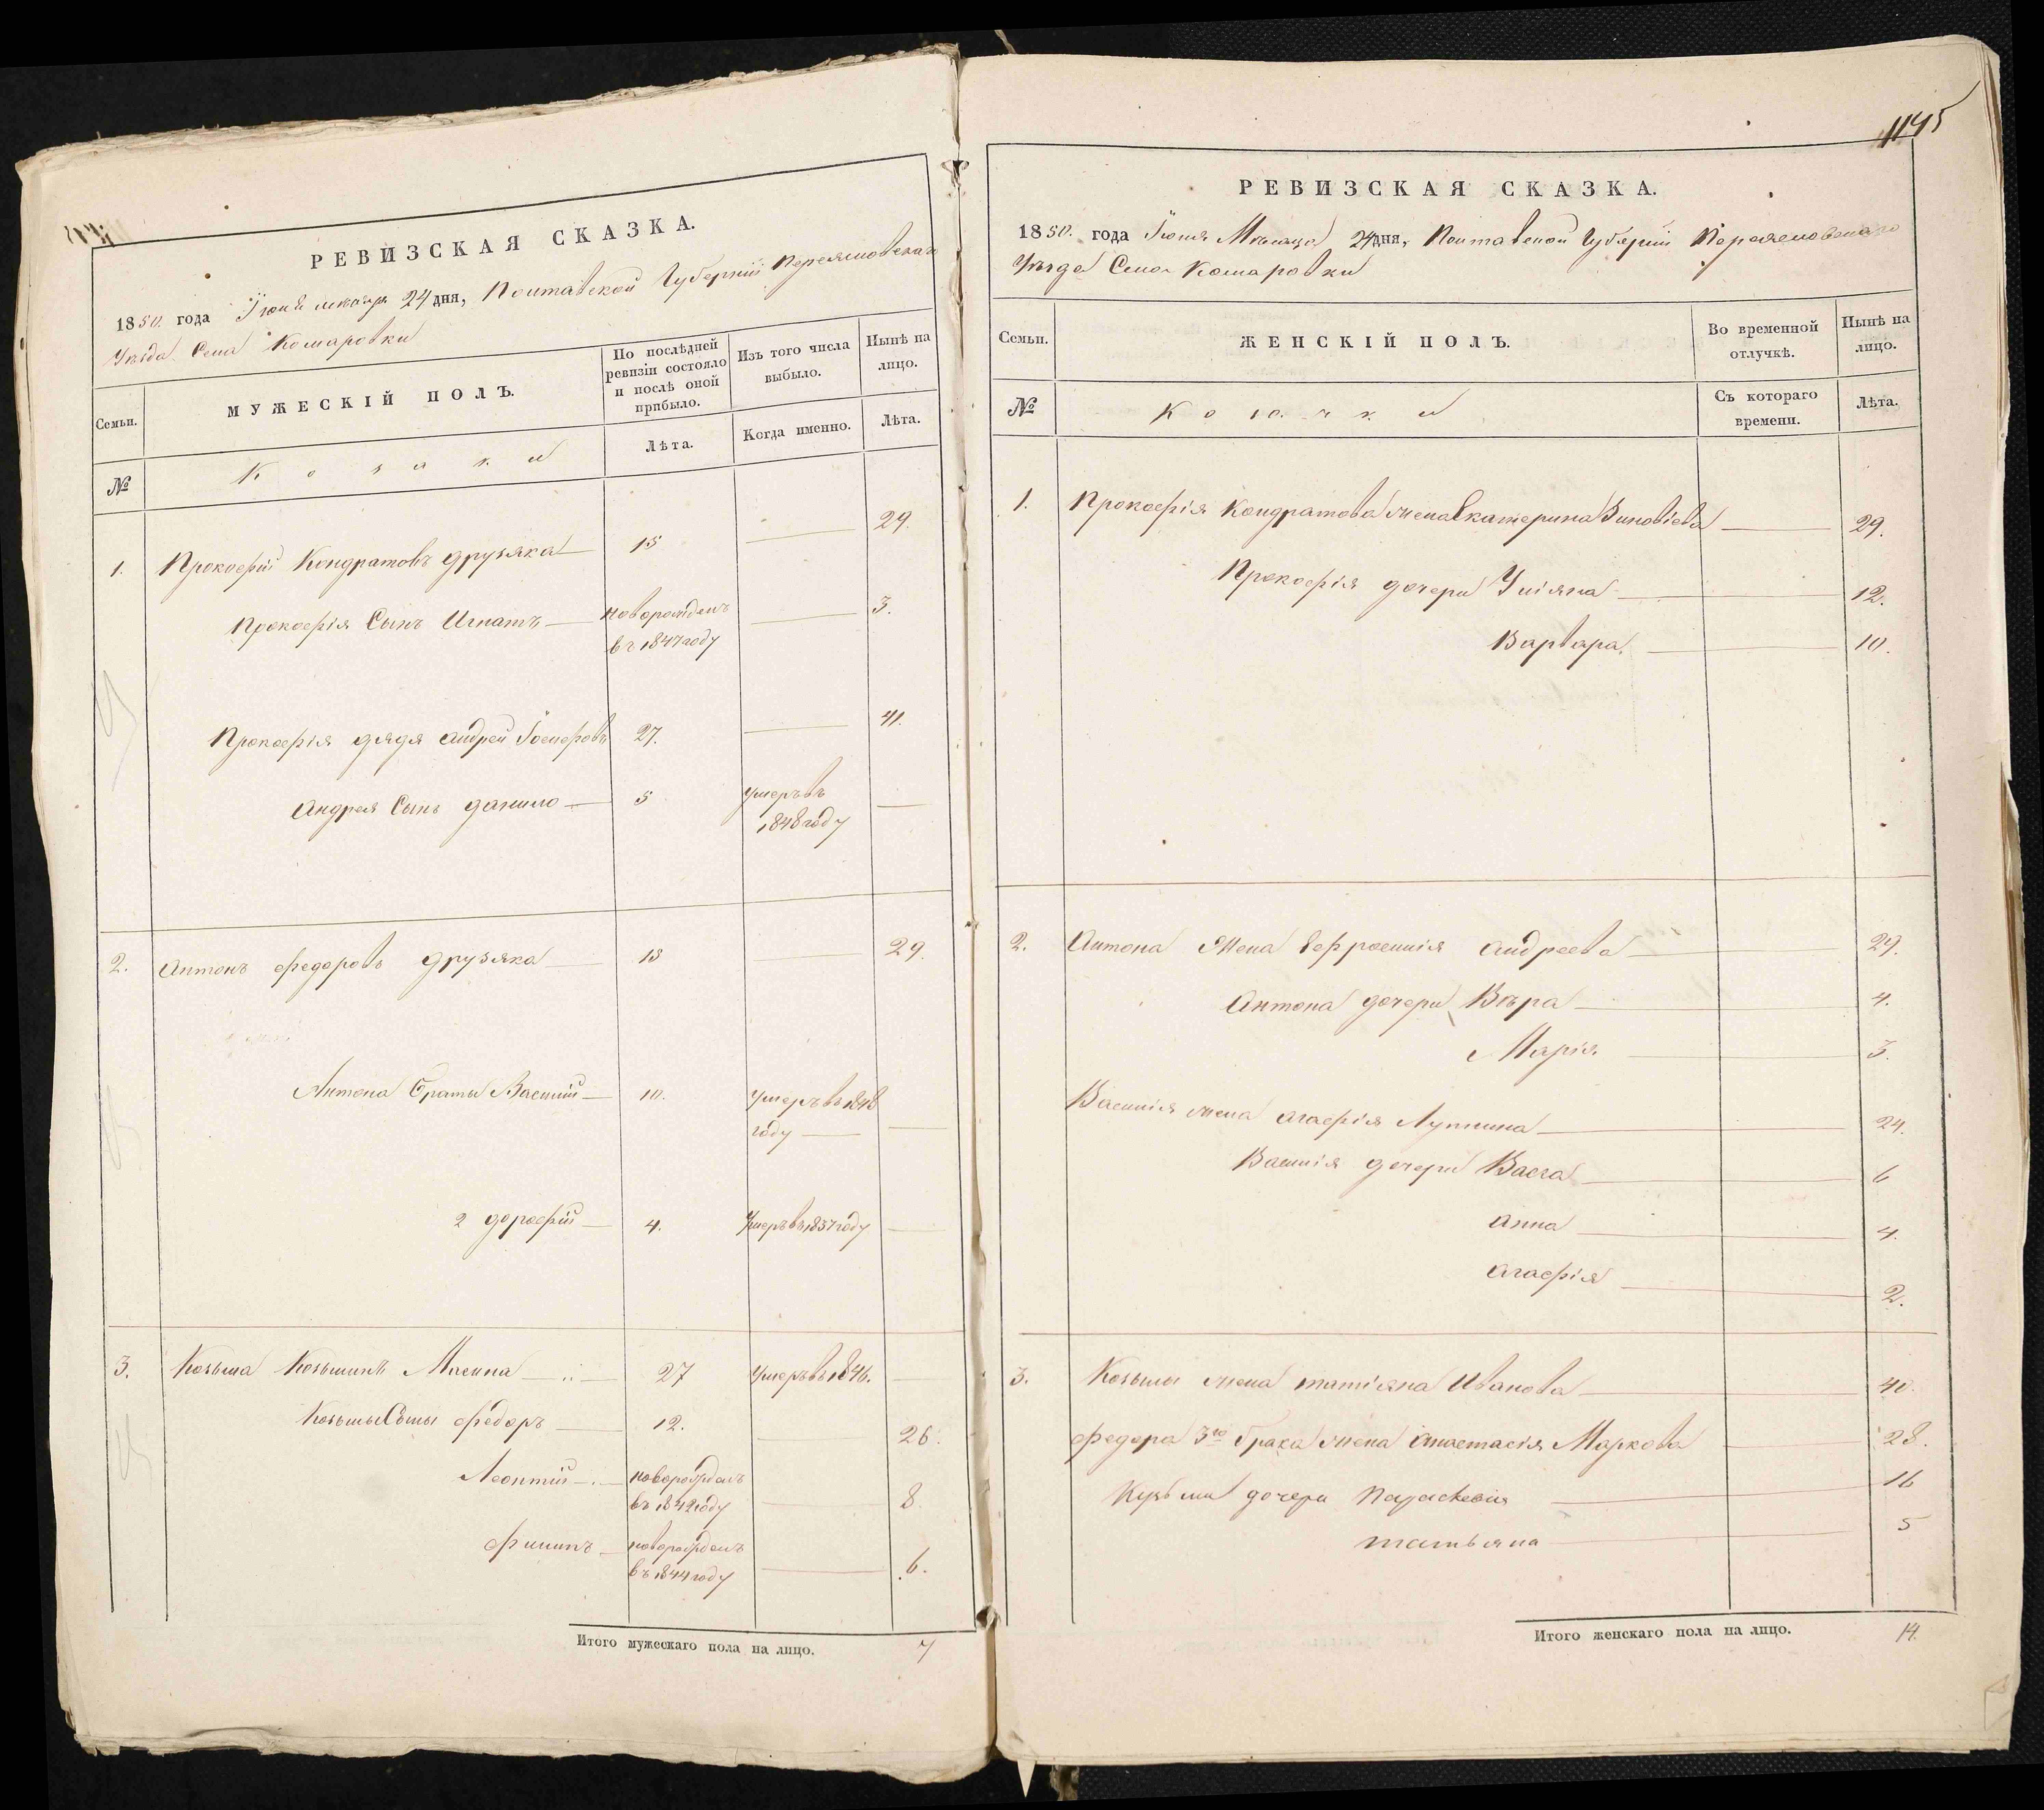 РЕВИЗСКАЯ СКАЗКА.
1850. года Іюня мѣсяца 24 дня, Полтавской Губерніи Переяславскаго
Уѣзда Села Комаровки
Семьи.
МУЖЕСКІЙ ПОЛЪ.
По послѣдней ревизіи состояло и послѣ оной прибыло.
Изъ того числа выбыло.
Нынѣ на лицо.
Лѣта.
Когда именно.
Лѣта.
№
Козаки
1. Прокофій Кондратовъ Друзяка 15 29.
Прокофія Сынъ Игнатъ новорожденъ 3.
въ 1847 году
Прокофія дядя Андрей Іосифовъ 27. 41.
Андрея Сынъ Данило 5 умеръ въ
1848 году
2. Антонъ Федоровъ Друзяка 13 29.
Антона Браты Василій 10. умеръ въ 1848
году
2 Дорофій 4. Умеръ въ 1837 году
3. Козьма Козьминъ 27 умеръ въ 1846.
Козьмы Сыны Федоръ 12. 26.
Леонтій новорожденъ
въ 1842 году 8.
Филипъ новорожденъ
въ 1844 году 6.
Итого мужескаго пола на лицо. 7
1145
РЕВИЗСКАЯ СКАЗКА.
1850. года Іюня Мѣсяца 24 дня, Полтавской Губерніи Переяславскаго
Уѣзда Села Комаровки
Семьи.
ЖЕНСКІЙ ПОЛЪ.
Во временной отлучкѣ.
Нынѣ на лицо.
№
Козачки
Съ котораго времени.
Лѣта.
1. Прокофія Кондратова жена Екатерина Зиновіева 29.
Прокофія дочери Уліяна 12.
Варвара. 10.
2. Антона Жена Ефросинія Андреева 29.
Антона дочери Вѣра 4.
Марія 3.
Василія жена Агафія Лупкина 24.
Василія дочери Васса 6
Анна 4.
Агафія 2.
3. Козьмы жена Татіяна Иванова 40.
Федора 3го брака жена Анастасія Маркова 28.
Кузьмы дочери Параскевія 16
Татьяна 5
Итого женскаго пола на лицо. 14.